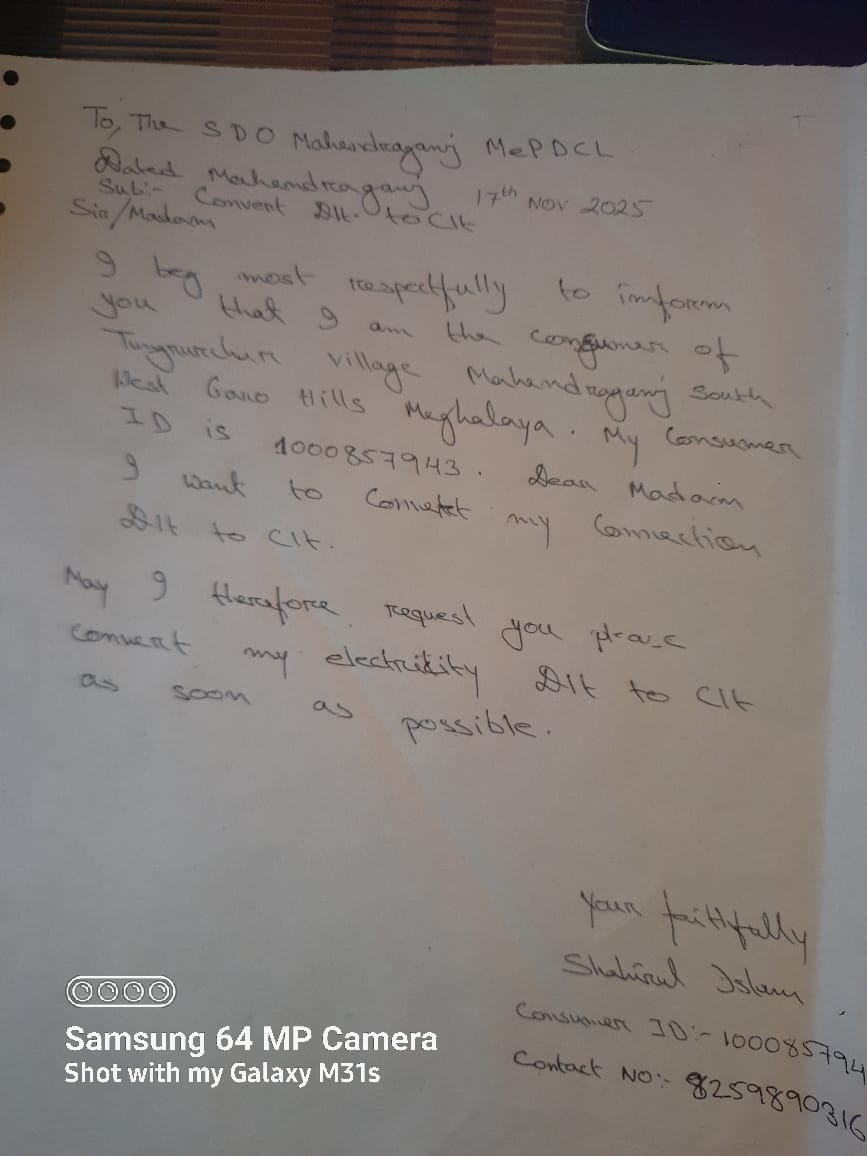 To, The SDO Mahendraganj MePDCL
Dated Mahendraganj 17th NOV 2025
Sub:- Convent Dlt. to Clt
Sir/Madam
I beg most respectfully to imform
you that I am the consumer of
village Mahendraganj South
West Garo Hills Meghalaya. My Consuomer
ID is 1000857943. Dear Madam
I want to my Connection
Dlt to Clt.
May I therefore request you
convert my electrikity Dlt to Clt
as soon as possible.
Your faithfully
Shahirul Islam
Consumer ID:- 100085794
Contact NO:- 8259890316
Samsung 64 MP Camera
Shot with my Galaxy M31s